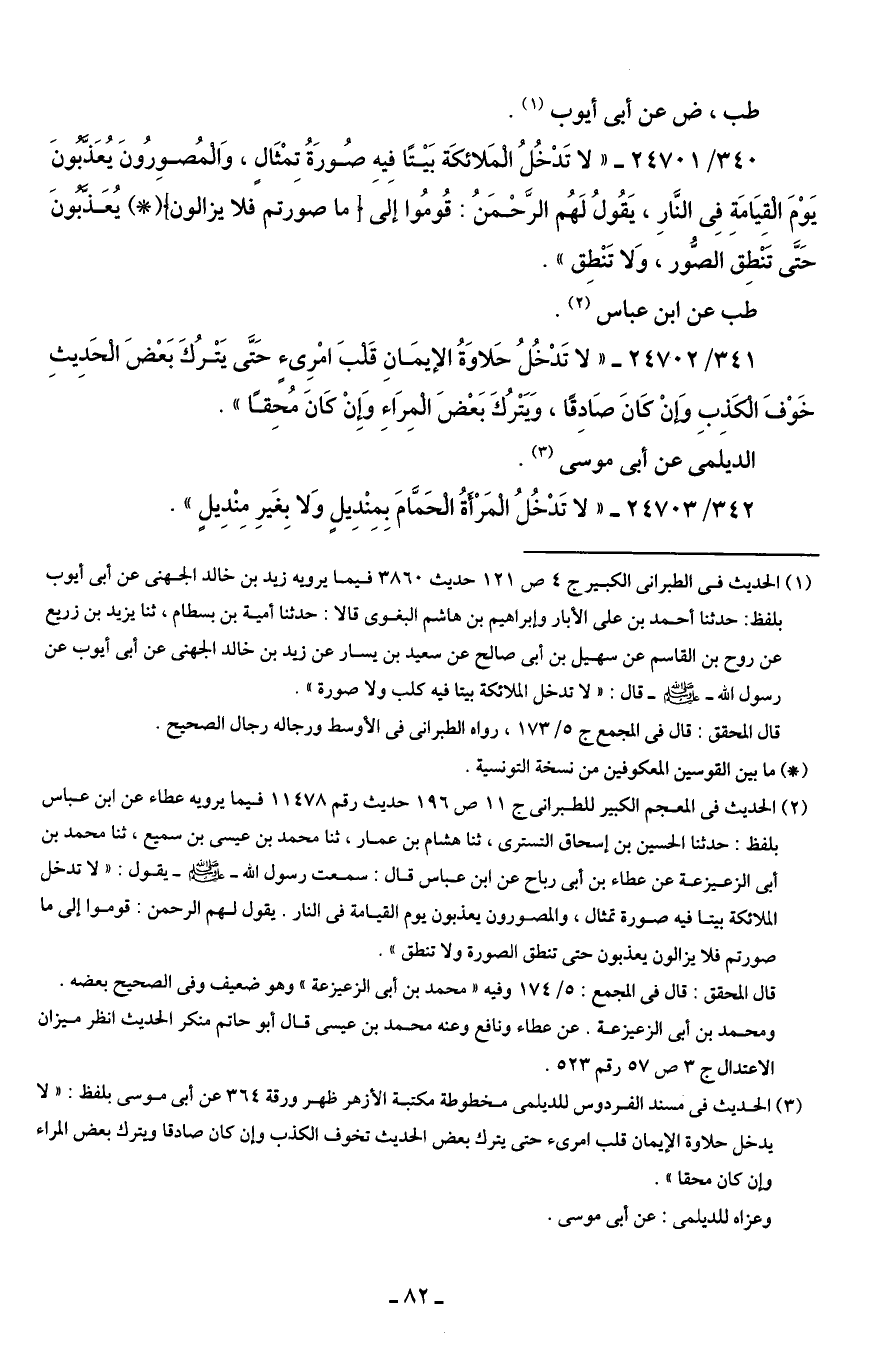 طب ، ض عن أبى أيوب (١) .
٣٤٠/ ٢٤٧٠١ ـ « لا تَدْخُلُ الْمَلائكَة بَيْتًا فِيهِ صُورَةُ تِمْثَالٍ ، وَالْمُصورُونَ يُعَذَّبُونَ
يَوْمَ الْقِيَامَةِ فِى النَّارِ ، يَقُولُ لَهُم الرَّحْمَنُ : قُومُوا إلى { ما صورتم فلا يزالون}(*) يُعَذَّبُونَ
حَتَّى تَنْطِق الصُّور ، وَلا تَنْطِق » .
طب عن ابن عباس (٢) .
٣٤١/ ٢٤٧٠٢ ـ « لا تَدْخُلُ حَلاوَةُ الإيمَانِ قَلْبَ امْرِىءٍ حَتَّى يَتْرُكَ بَعْضَ الْحَدِيثِ
خَوْفَ الْكَذِبِ وَإِنْ كَانَ صَادِقًا ، وَيَتْرُكَ بَعْضَ الْمِرَاءِ وَإِنْ كَانَ مُحِقًا » .
الديلمى عن أبى موسى (٣) .
٣٤٢/ ٢٤٧٠٣ ـ « لا تَدْخُلُ الْمَرْأَةُ الْحَمَّامَ بِمِنْدِيلٍ وَلا بِغَيرِ مِنْدِيلٍ » .
(١) الحديث فى الطبرانى الكبير ج ٤ ص ١٢١ حديث ٣٨٦٠ فيما يرويه زيد بن خالد الجهنى عن أبى أيوب
بلفظ: حدثنا أحمد بن على الأبار وإبراهيم بن هاشم البغوى قالا : حدثنا أمية بن بسطام ، ثنا يزيد بن زريع
عن روح بن القاسم عن سهيل بن أبى صالح عن سعيد بن يسار عن زيد بن خالد الجهنى عن أبى أيوب عن
رسول الله ـ ﷺ ـ قال : « لا تدخل الملائكة بيتا فيه كلب ولا صورة » .
قال المحقق : قال فى المجمع ج ٥/ ١٧٣ ، رواه الطبرانى فى الأوسط ورجاله رجال الصحيح .
(*) ما بين القوسين المعكوفين من نسخة التونسية .
(٢) الحديث فى المعجم الكبير للطبرانى ج ١١ ص ١٩٦ حديث رقم ١١٤٧٨ فيما يرويه عطاء عن ابن عباس
بلفظ : حدثنا الحسين بن إسحاق التسترى ، ثنا هشام بن عمار ، ثنا محمد بن عيسى بن سميع ، ثنا محمد بن
أبى الزعيزعة عن عطاء بن أبى رباح عن ابن عباس قال : سمعت رسول الله ـ ﷺ ـ يقول : « لا تدخل
الملائكة بيتا فيه صورة تمثال ، والمصورون يعذبون يوم القيامة فى النار . يقول لهم الرحمن : قوموا إلى ما
صورتم فلا يزالون يعذبون حتى تنطق الصورة ولا تنطق » .
قال المحقق : قال فى المجمع : ٥/ ١٧٤ وفيه « محمد بن أبى الزعيزعة » وهو ضعيف وفى الصحيح بعضه .
ومحمد بن أبى الزعيزعة . عن عطاء ونافع وعنه محمد بن عيسى قال أبو حاتم منكر الحديث انظر ميزان
الاعتدال ج ٣ ص ٥٧ رقم ٥٢٣ .
(٣) الحديث فى مسند الفردوس للديلمى مخطوطة مكتبة الأزهر ظهر ورقة ٣٦٤ عن أبى موسى بلفظ : « لا
يدخل حلاوة الإيمان قلب امرىء حتى يترك بعض الحديث تخوف الكذب وإن كان صادقا ويترك بعض المراء
وإن كان محقا » .
وعزاه للديلمى : عن أبى موسى .
ـ ٨٢ ـ